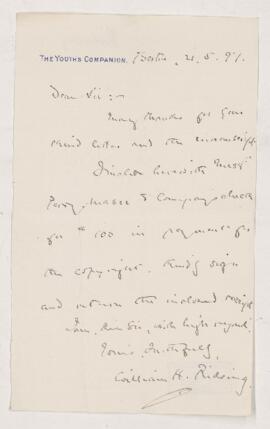 THE YOUTH'S COMPANION. Boston, 21. 5. 97.
Dear Sir:—
Many thanks for your
kind letter and the manuscript
I inclose herewith Messrs
Perry, Mason & Company's check
for $100 in payment for
the copyright. Kindly sign
and return the inclosed receipt
I am, Dear Sir, with high regard,
Yours faithfully,
William H. Rideing